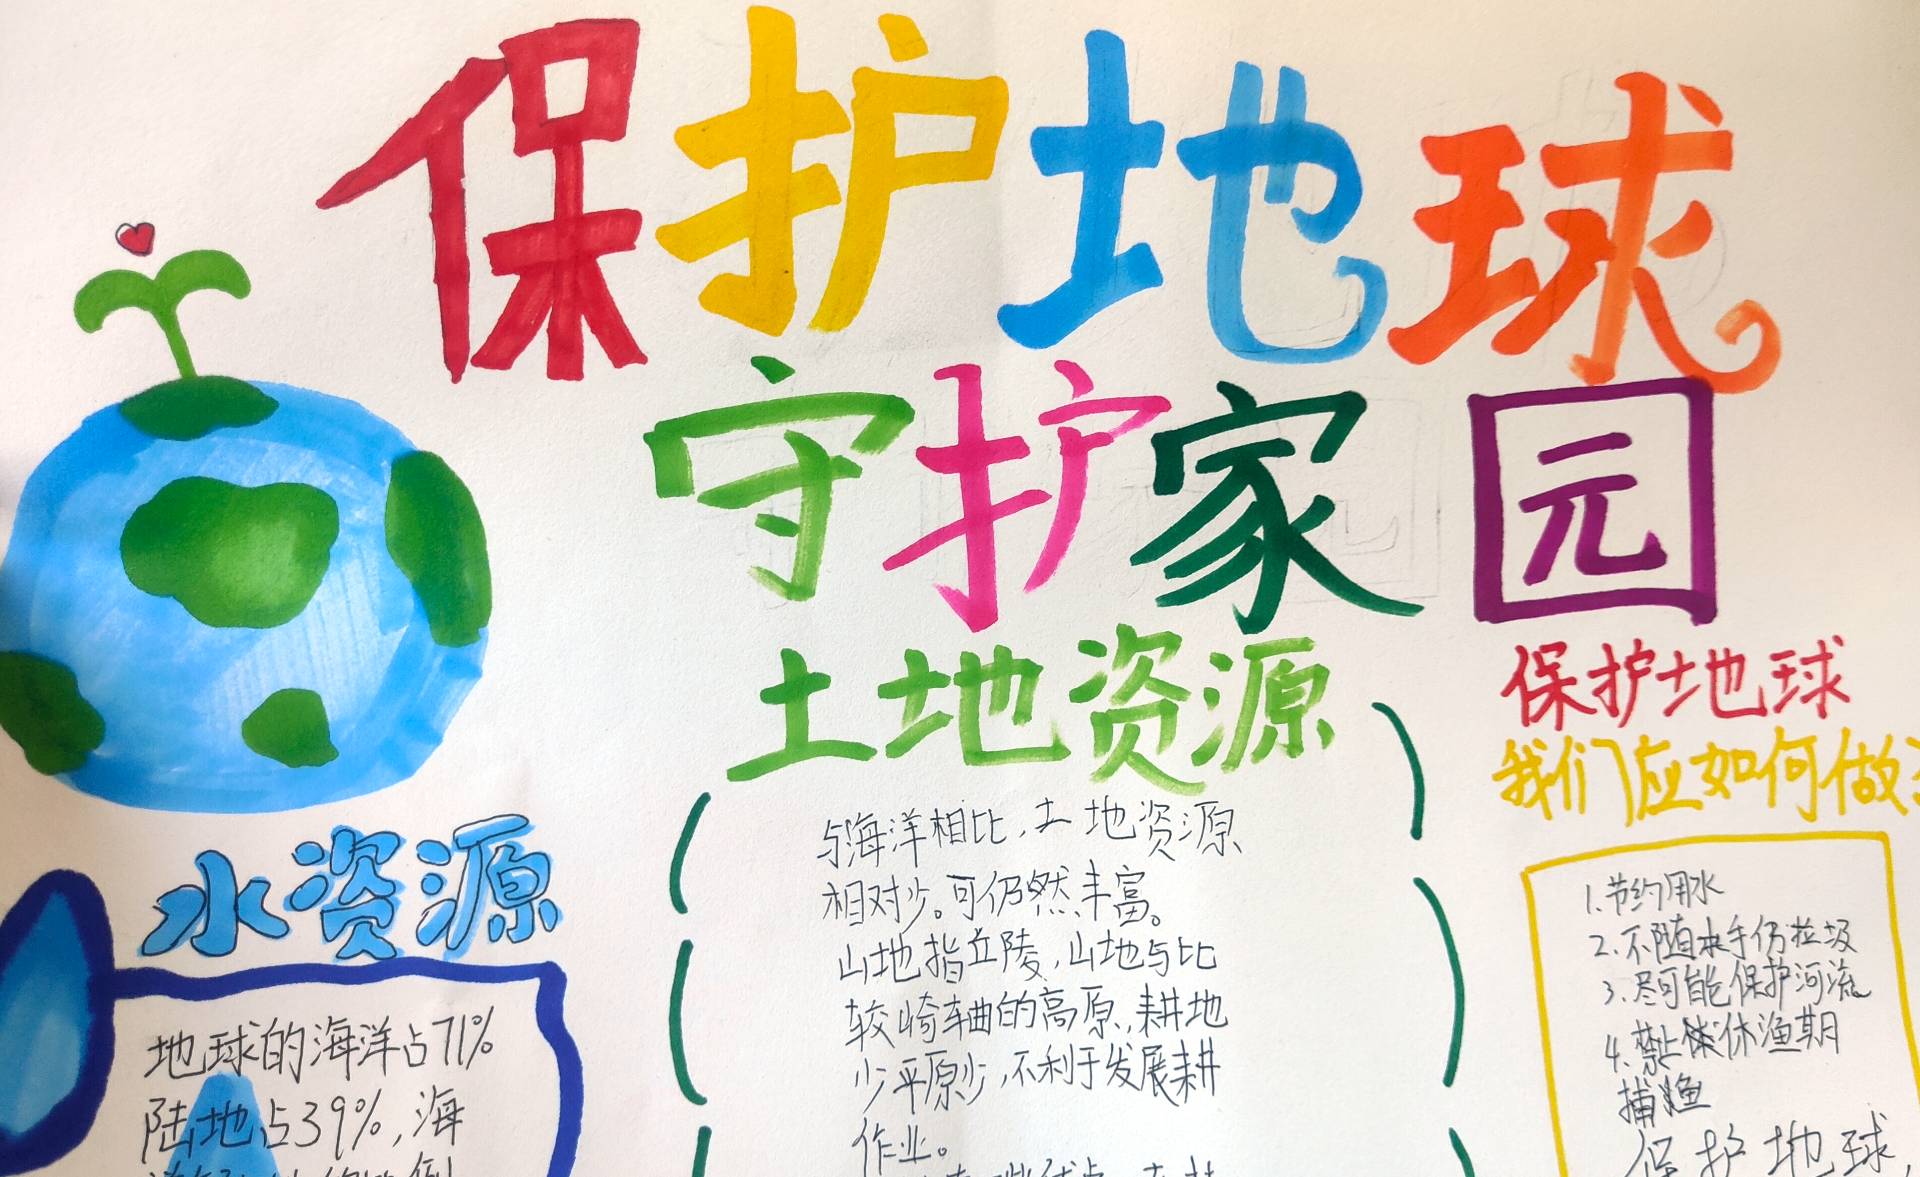 保护地球
守护家园
土地资源
与海洋相比，土地资源
相对少。可仍然丰富。
山地指丘陵，山地与比
较崎岖的高原，耕地
少平原少，不利于发展耕
作业。
水资源
地球的海洋占71%
陆地占39%，海
保护地球
我们应如何做
1.节约用水
2.不随手仍垃圾
3.尽可能保护河流
4.禁止休渔期
捕鱼
保护地球，